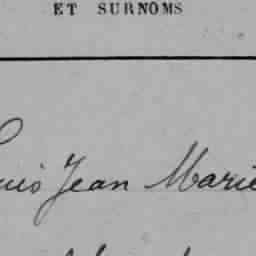 ET SURNOMS
Louis Jean Marie